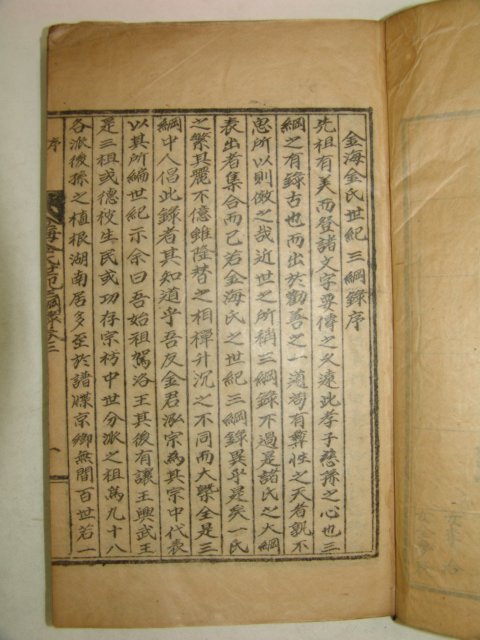 金海金氏世紀三綱錄序
先祖有美而登諸文字要傳之久遠此孝子慈孫之心也三
綱之有錄古也而出於勸善之一道苟有彛性之天者孰不
思所以則倣之哉近世之所稍三綱錄不過是諸氏之大綱
表出者集合而已若金海氏之世紀三綱錄異乎是矣一氏
之繁其麗不億雖隆替之相禪升沉之不同而大槩全是三
綱中人倡此錄者其知道乎吾友金君泓宗爲其宗中代表
以其所編世紀示余曰吾始祖駕洛王其後有讓王興武王
是三祖或德校生民或功存宗祊中世分派之祖爲九十八
各派後孫之植根湖南居多至於譜牒京鄉無間百世若一
序
金海金氏世紀三綱錄卷之二
一